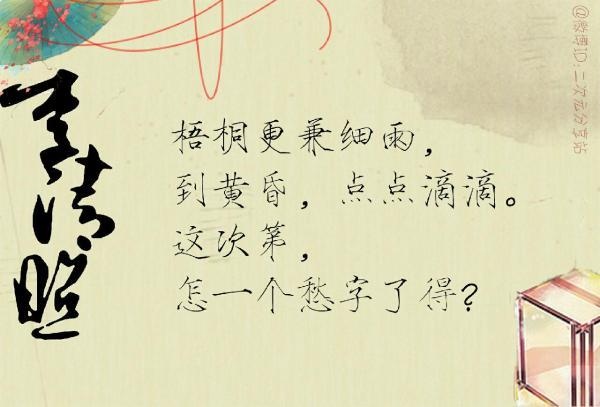 李清照
梧桐更兼细雨，
到黄昏，点点滴滴。
这次第，
怎一个愁字了得？
@微博ID:二次元分享站